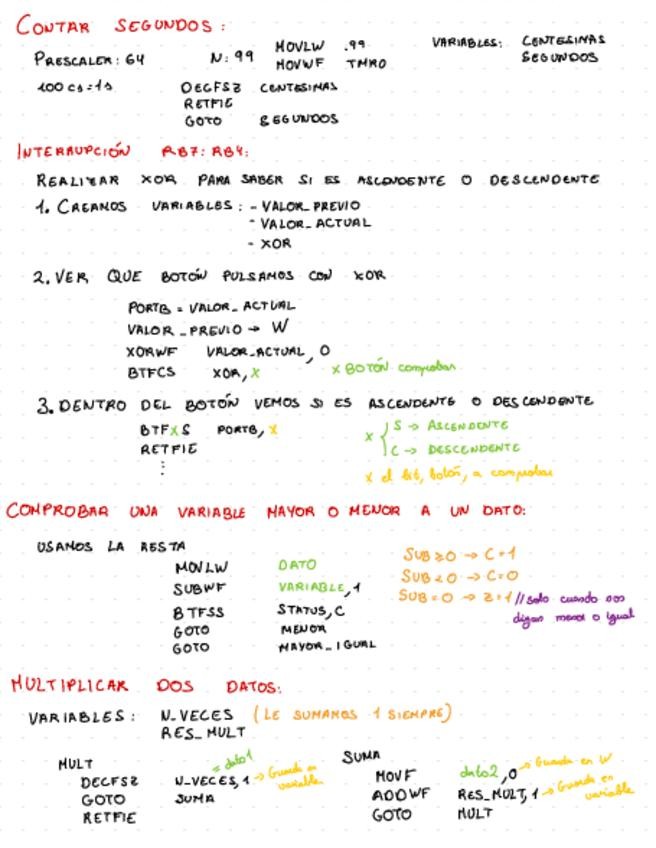 CONTAR SEGUNDOS:
PRESCALER: 64 N: 99 MOVLW .99 VARIABLES: CENTESIMAS
MOVWF TMR0 SEGUNDOS
100 cs = 1s DECFSZ CENTESIMAS
RETFIE
GOTO SEGUNDOS
INTERRUPCIÓN RB7:RB4:
REALIZAR XOR PARA SABER SI ES ASCENDENTE O DESCENDENTE
1. CREAMOS VARIABLES: - VALOR_PREVIO
- VALOR_ACTUAL
- XOR
2. VER QUE BOTÓN PULSAMOS CON XOR
PORTB = VALOR_ACTUAL
VALOR_PREVIO → W
XORWF VALOR_ACTUAL, 0
BTFCS XOR, X X BOTÓN comprobar
3. DENTRO DEL BOTÓN VEMOS SI ES ASCENDENTE O DESCENDENTE
BTFXS PORTB, X X { S → ASCENDENTE
RETFIE C → DESCENDENTE
⋮ X el bit, botón, a comprobar
COMPROBAR UNA VARIABLE MAYOR O MENOR A UN DATO:
USAMOS LA RESTA
MOVLW DATO SUB ≥ 0 → C = 1
SUBWF VARIABLE, 1 SUB < 0 → C = 0
BTFSS STATUS, C SUB = 0 → Z = 1 // solo cuando nos
GOTO MENOR digan menor o igual
GOTO MAYOR_IGUAL
MULTIPLICAR DOS DATOS:
VARIABLES: N_VECES (LE SUMAMOS 1 SIEMPRE)
RES_MULT
MULT = dato1 SUMA
DECFSZ N_VECES, 1 → Guarda en variable MOVF dato2, 0 → Guarda en W
GOTO SUMA ADDWF RES_MULT, 1 → Guarda en variable
RETFIE GOTO MULT